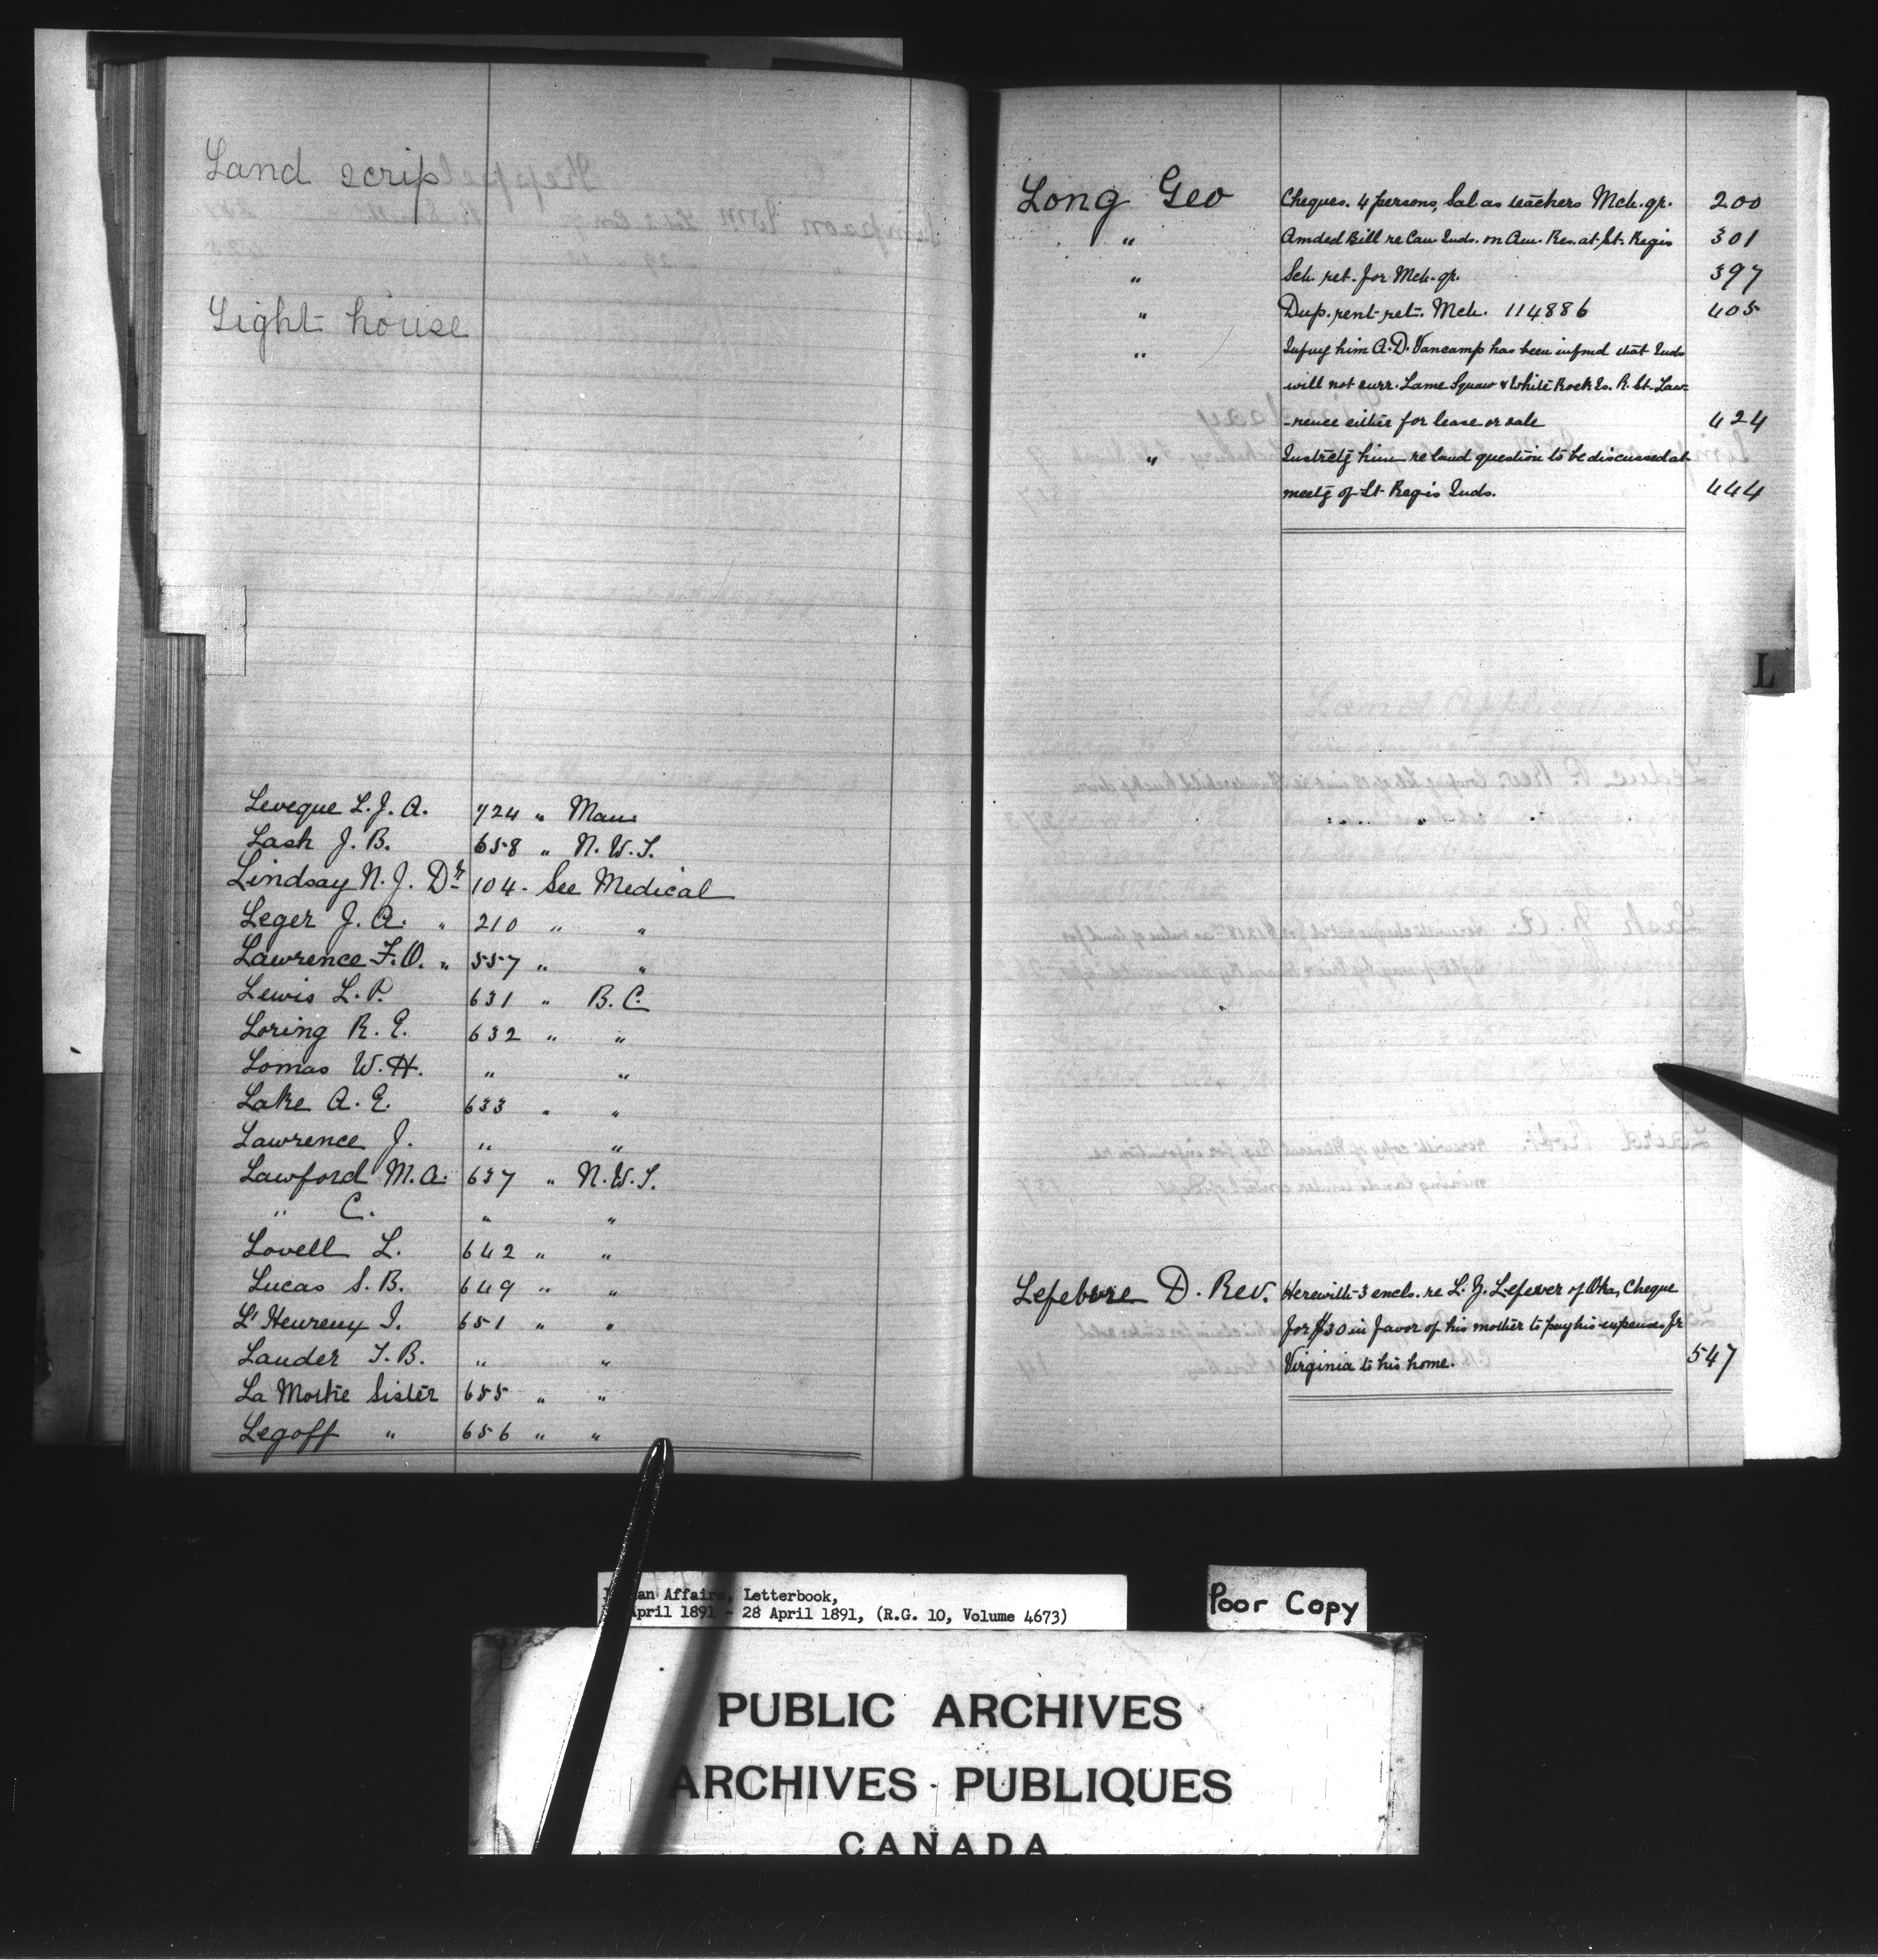 Land scrip
Light house
Leveque L. J. A. 724 " Man
Lash J. B. 658 " N. W. T.
Lindsay N. J. Dr 104. See Medical
Leger J. A. " 210 " "
Lawrence F. O. " 557 " "
Lewis L. P. 631 " B. C.
Loring R. E. 632 " "
Lomas W. H. " "
Lake A. E. 633 " "
Lawrence J. " "
Lawford M. A. 637 " N. W. T.
" C. " "
Lovell L. 642 " "
Lucas S. B. 649 " "
L'Heureux J. 651 " "
Lauder T. B. " "
La Mothe Sister 655 " "
Legoff " 656 " "
Long Geo Cheques. 4 persons, Sal as teachers Mch. qr. 200
" Amded Bill re Can. Inds. on Am. Res. at St. Regis 301
" Sch. ret. for Mch. qr. 397
" Dup. rent ret. Mch. 114886 405
" Infmg him A. D. Vancamp has been infmd that Inds
will not surr. Lame Squaw & White Rock Is. R. St. Law-
-rence either for lease or sale 424
" Instrctg him re land question to be discussed at
meetg of St Regis Inds. 444
L
Lefebvre D. Rev. Herewith 3 encls. re L. Z. Lefever of Oka, Cheque
for $30 in favor of his mother to pay his expenses fr
Virginia to his home. 547
an Affairs, Letterbook,
April 1891 - 28 April 1891, (R.G. 10, Volume 4673)
Poor Copy
PUBLIC ARCHIVES
ARCHIVES PUBLIQUES
CANADA